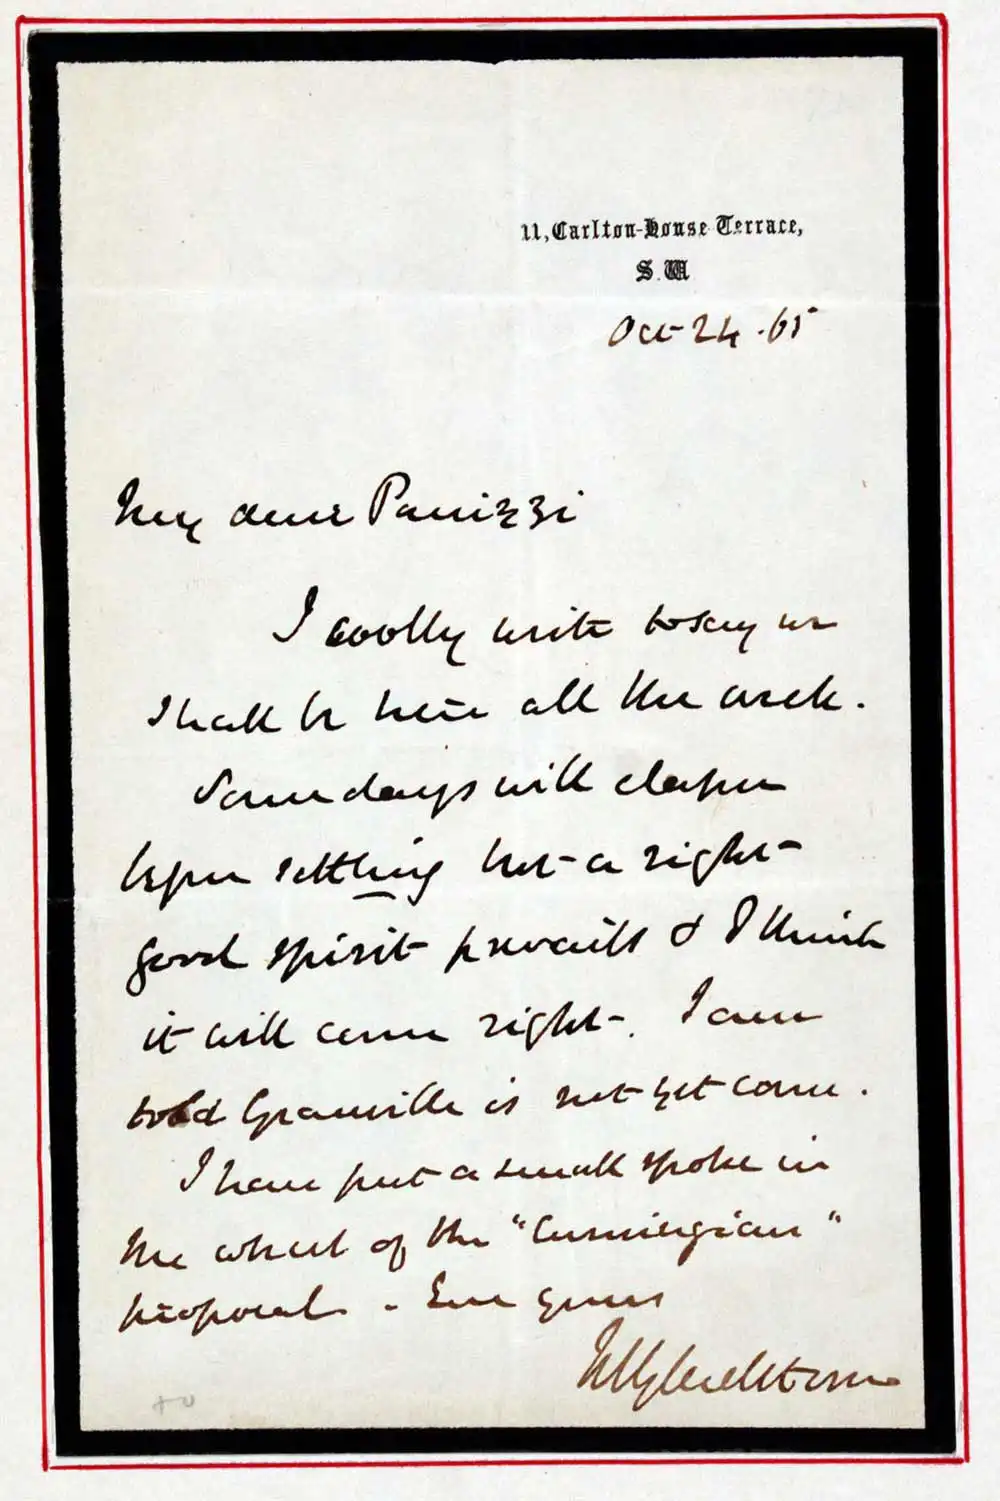 11, Carlton-House-Terrace,
S.W
Oct 24 . 65
My dear Panizzi
I write to say we
shall be here all the week.
Some days will elapse
before settling but a right
good spirit prevails & I think
it will come right. I am
told Granville is not yet come.
I have put a small spoke in
the wheel of the " "
proposal - Ever yours
WEGladstone